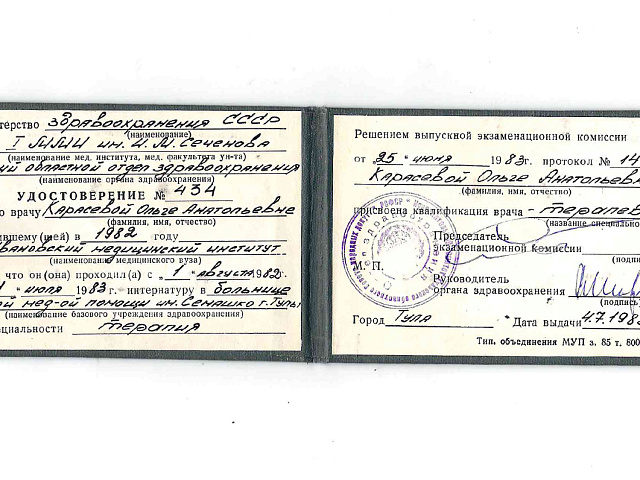 терство здравоохранения СССР
(наименование)
I ММИ им. И. М. Сеченова
(наименование мед. института, мед. факультета ун-та)
областной отдел здравоохранения
(наименование органа здравоохранения)
УДОСТОВЕРЕНИЕ № 434
о врачу Карасевой Ольге Анатольевне
(фамилия, имя, отчество)
вшему(шей) в 1982 году
вановский медицинский институт
(наименование медицинского вуза)
что он(она) проходил(а) с „1" августа 1982г.
1 " июля 1983г. интернатуру в больнице
ой мед-ой помощи им. Семашко г. Тулы
(наименование базового учреждения здравоохранения)
циальности терапия
Решением выпускной экзаменационной комиссии
от „25" июня 1983г. протокол № 14
Карасевой Ольге Анатольев
(фамилия, имя, отчество)
присвоена квалификация врача - терапев
(название специально
Председатель
экзаменационной комиссии
(подпи
М. П.
Руководитель
органа здравоохранения
(подпис
Город Тула Дата выдачи 4.7.198
Тип. объединения МУП з. 85 т. 800